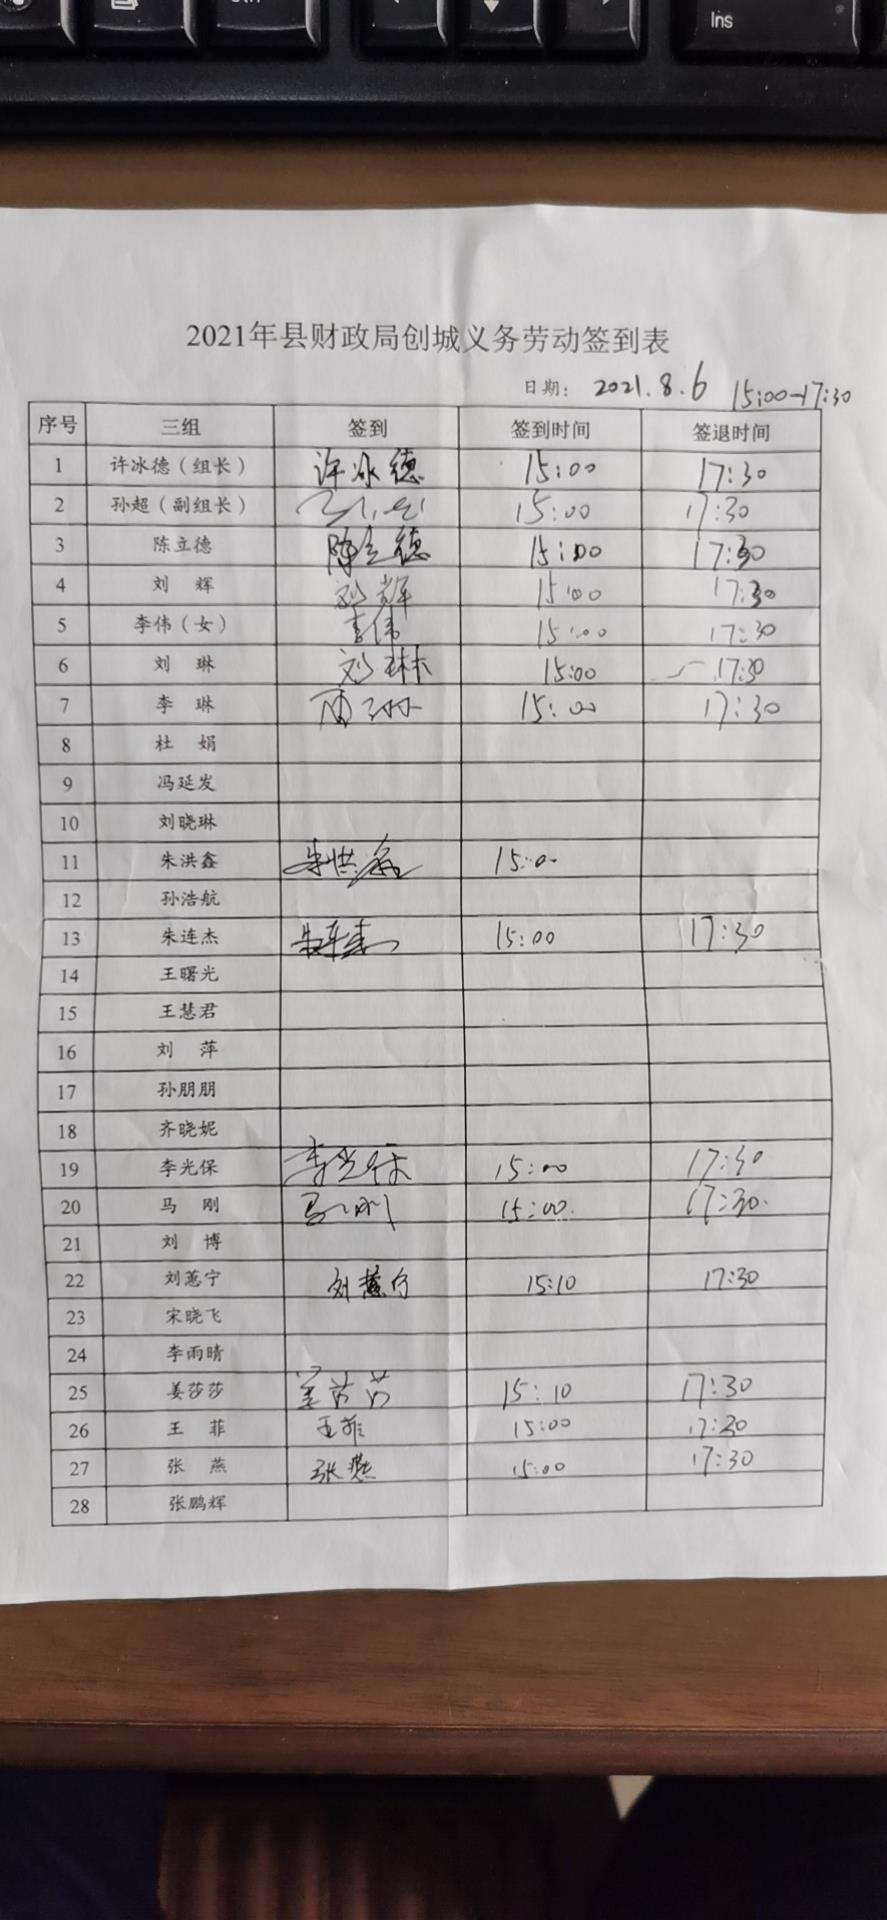 Ins
2021年县财政局创城义务劳动签到表
日期: 2021.8.6 15:00-17:30
序号 三组 签到 签到时间 签退时间
1 许冰德（组长） 许冰德 15:00 17:30
2 孙超（副组长） 15:00 17:30
3 陈立德 陈立德 15:00 17:30
4 刘 辉 刘辉 15:00 17:30
5 李伟（女） 李伟 15:00 17:30
6 刘 琳 刘琳 15:00 17:30
7 李 琳 15:00 17:30
8 杜 娟
9 冯延发
10 刘晓琳
11 朱洪鑫 朱洪鑫 15:00
12 孙浩航
13 朱连杰 朱连杰 15:00 17:30
14 王曙光
15 王慧君
16 刘 萍
17 孙朋朋
18 齐晓妮
19 李光保 李光保 15:00 17:30
20 马 刚 马刚 15:00. 17:30.
21 刘 博
22 刘蕙宁 刘蕙宁 15:10 17:30
23 宋晓飞
24 李雨晴
25 姜莎莎 15:10 17:30
26 王 菲 王菲 15:00 17:30
27 张 燕 张燕 15:00 17:30
28 张鹏辉